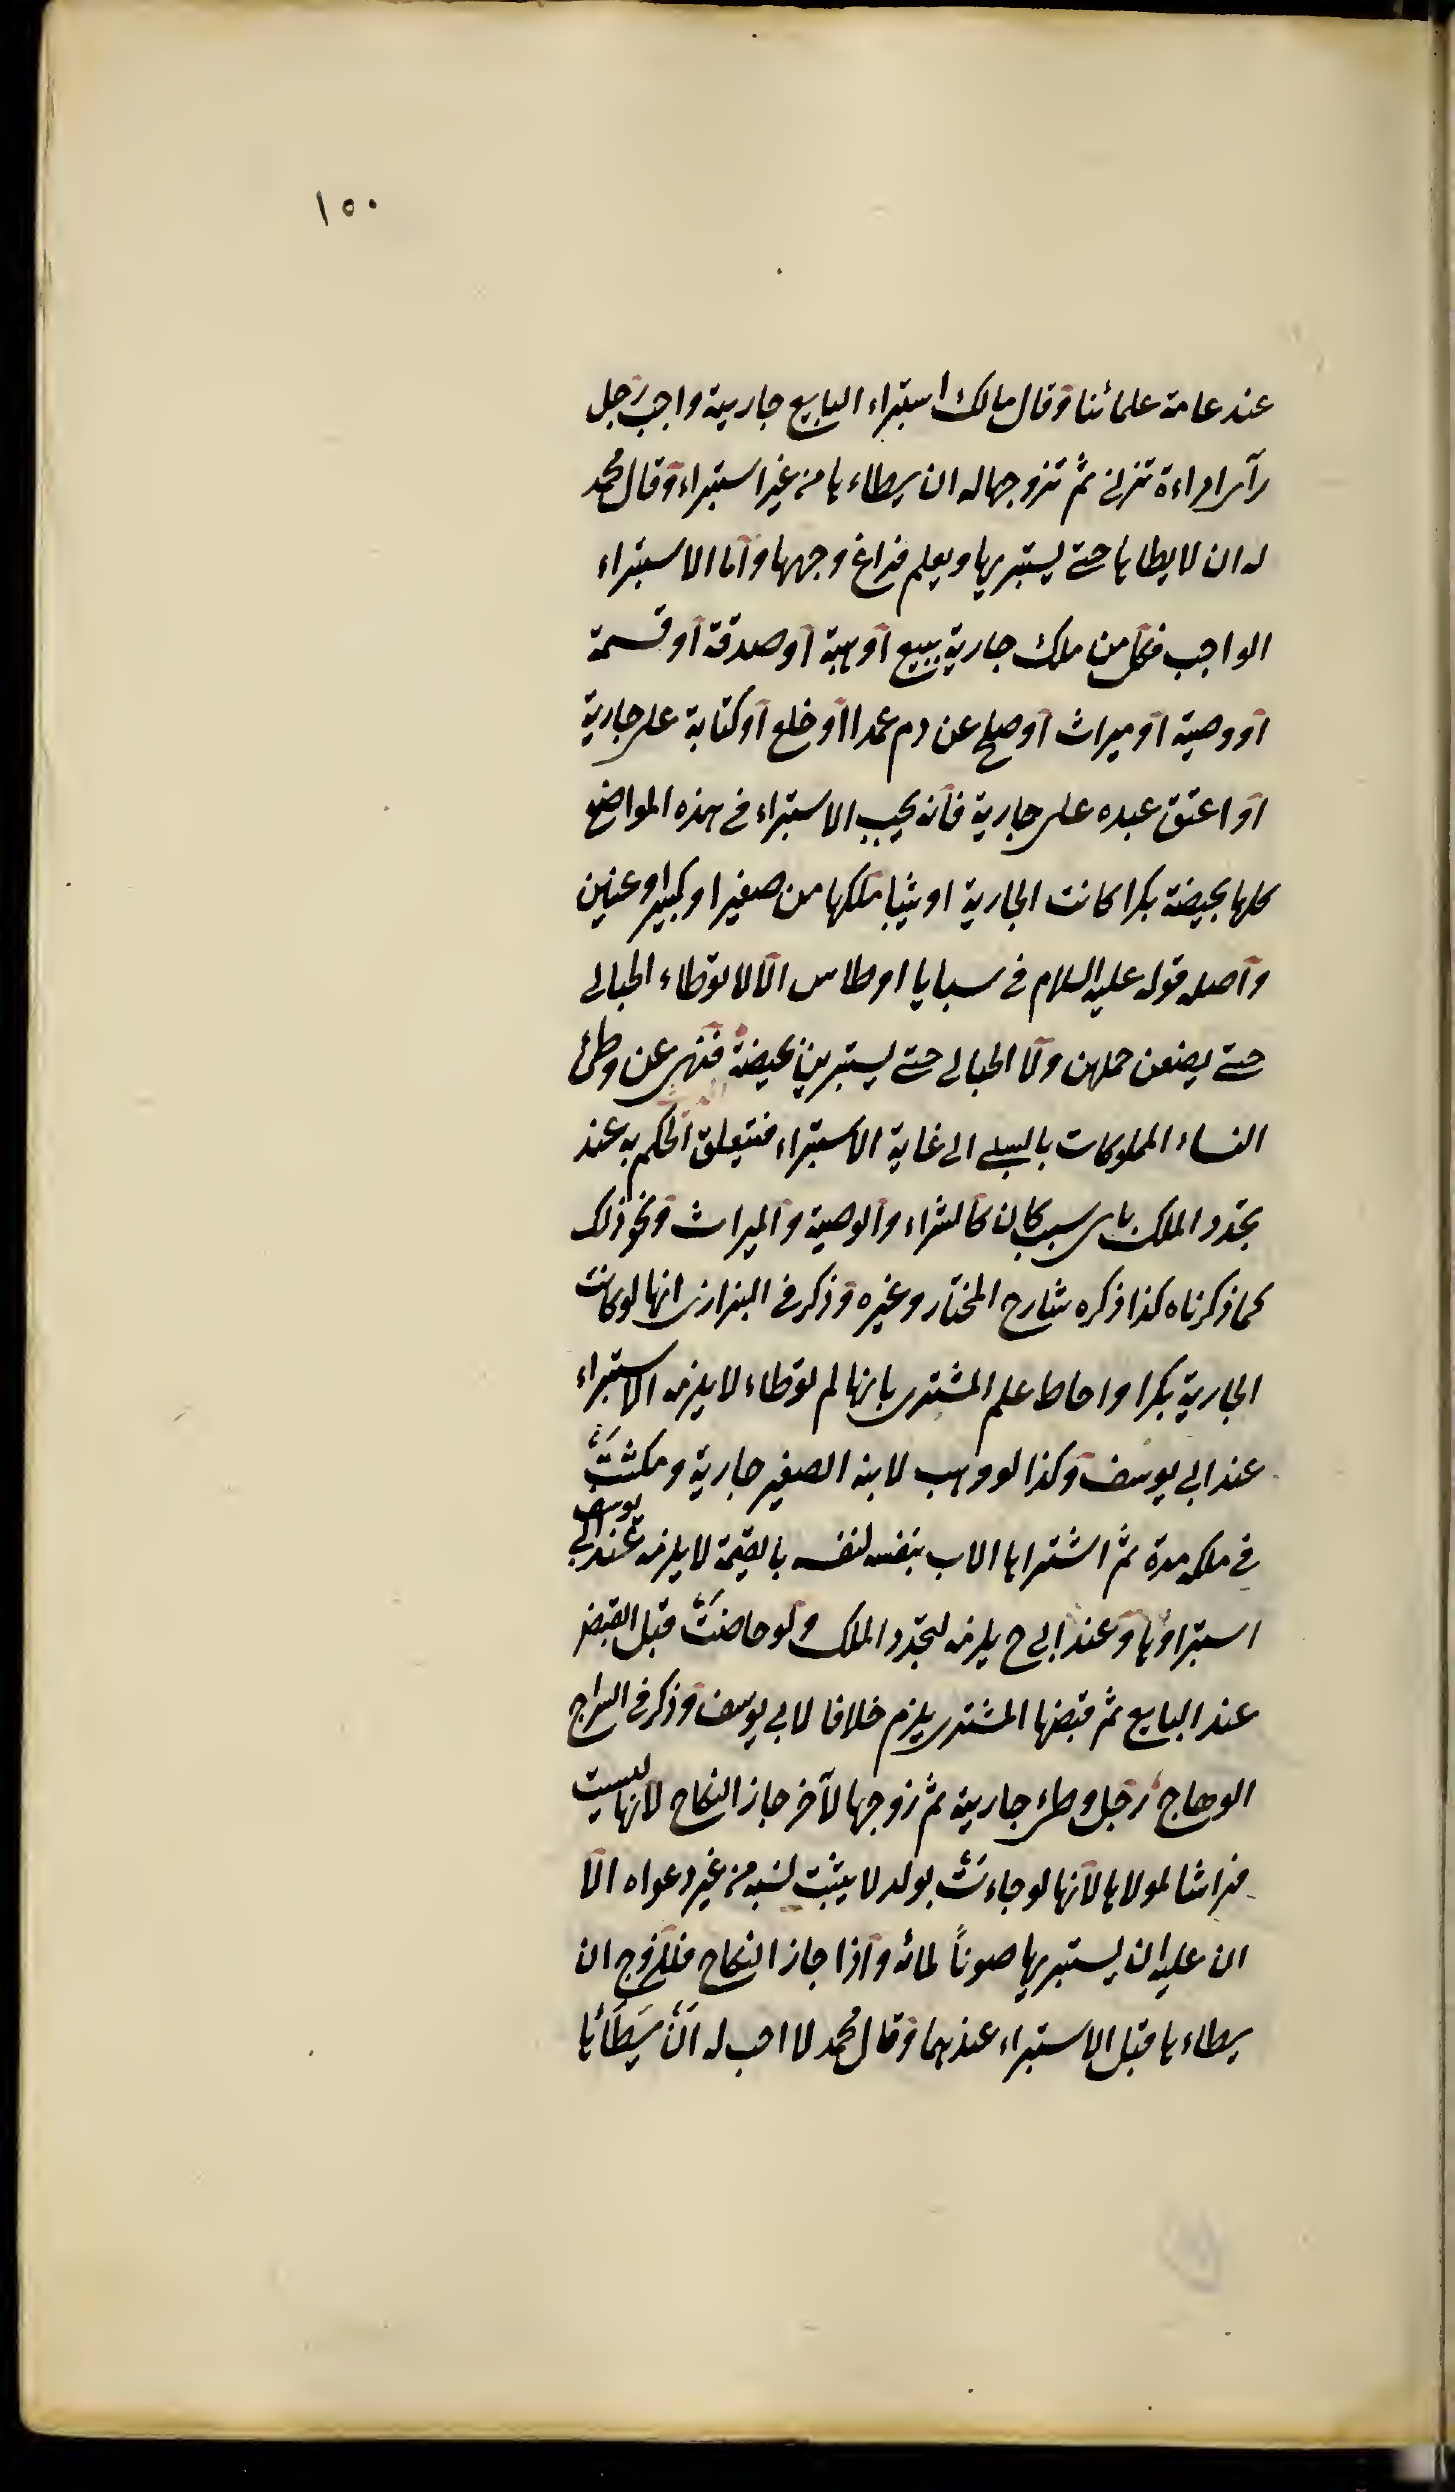 ١٥٠
عند عامة علمائنا وقال مالك استبراء البايع جاريية واجب رجل
رآى امراءة تزنى ثم تزوجها له ان يطاءها من غير استبراء وقال محمد
له ان لا يطاها حتى يستبريها ويعلم فراغ رحمها واما الاستبراء
الواجب فكل من ملك جارية ببيع او هبة او صدقة او قسمة
او وصية او ميراث او صلح عن دم عمدا او خلع او كتابة على جارية
او اعتق عبده على جارية فانه يجب الاستبراء في هذه المواضع
كلها بحيضة بكرا كانت الجارية او ثيبا ملكها من صغير او كبير او عنين
واصله قوله عليه السلام في سبايا اوطاس الا لا توطاء الحبالى
حتى يضعن حملهن ولا الحبالى حتى يستبرين بحيضة فنهى عن وطئ
النساء المملوكات بالسبي الى غاية الاستبراء فتيعلق الحكم به عند
تجدد الملك باى سبب كان كالشراء والوصية والميراث ونحو ذلك
كما ذكرناه كذا ذكره شارح المختار وغيره وذكر في البزازى انها لو كانت
الجارية بكرا واحاط علم المشترى بانها لم توطاء لا يلزمه الاستبراء
عند ابي يوسف وكذا لو وهب لابنه الصغير جارية ومكثت
في ملكه مدة ثم اشتراها الاب بنفسه لنفسه بالقيمة لا يلزمه عند ابي يوسف
استبراؤها وعند ابي ح يلزمه لتجدد الملك ولو حاضت قبل القبض
عند البايع ثم قبضها المشترى يلزم خلافا لابي يوسف وذكر في السراج
الوهاج رجل وطئ جاريية ثم زوجها لآخر جاز النكاح لانها ليست
فراشا لمولاها لانها لو جاءت بولد لا يثبت نسبه من غير دعواه الا
ان عليه ان يستبريها صونا لمائه واذا جاز النكاح فللزوج ان
يطاءها قبل الاستبراء عندهما وقال محمد لا احب له ان يطأها